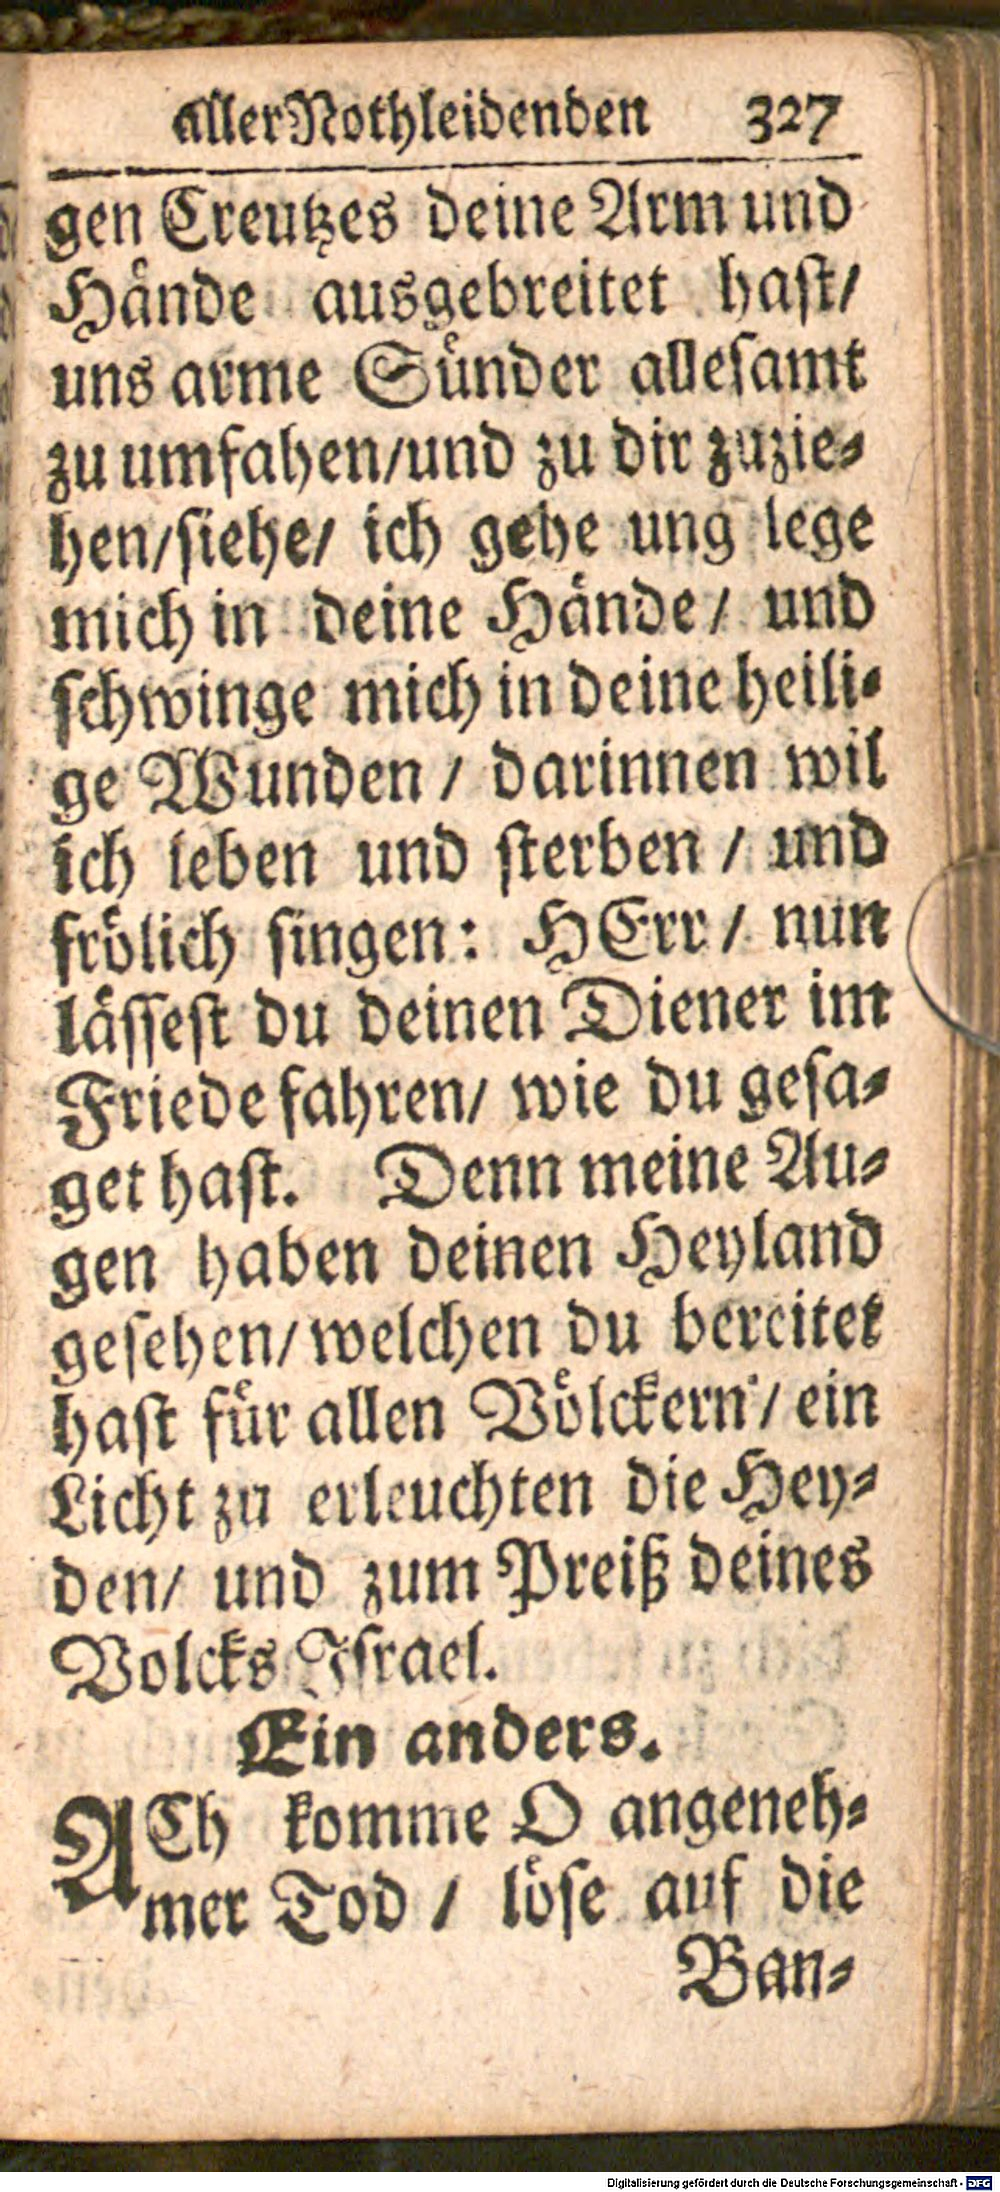 aller Nothleidenden 327
gen Creutzes deine Arm und
Haͤnde ausgebreitet hast/
uns arme Suͤnder allesamt
zu umfahen/und zu dir zuzie-
hen/siehe/ ich gehe ung lege
mich in deine Haͤnde/ und
schwinge mich in deine heili-
ge Wunden / darinnen wil
ich leben und sterben / und
froͤlich singen: HErr / nun
laͤssest du deinen Diener im
Friede fahren/ wie du gesa-
get hast. Denn meine Au-
gen haben deinen Heyland
gesehen/welchen du bereitet
hast fuͤr allen Voͤlckern / ein
Licht zu erleuchten die Hey-
den/ und zum Preiß deines
Volcks Israel.
Ein anders.
ACh komme O angeneh-
mer Tod / loͤse auf die
Ban-
Digitalisierung gefördert durch die Deutsche Forschungsgemeinschaft - DFG